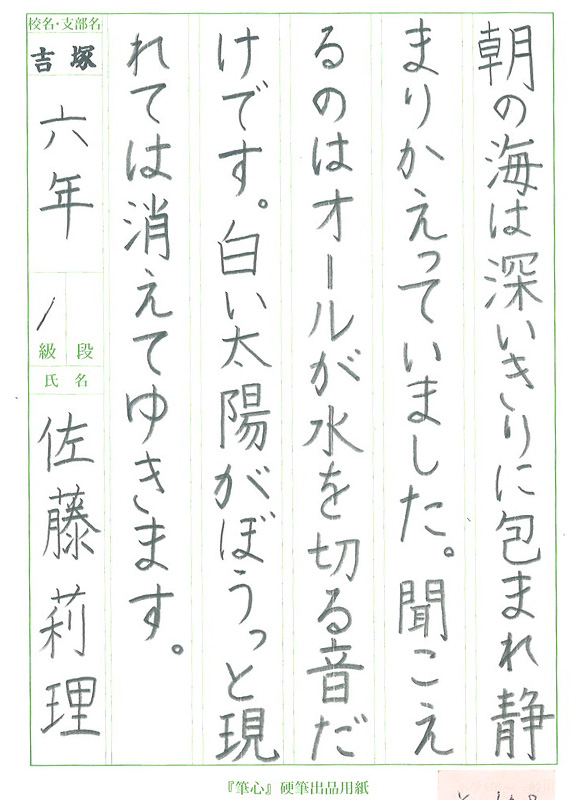 朝の海は深いきりに包まれ静
まりかえっていました。聞こえ
るのはオールが水を切る音だ
けです。白い太陽がぼうっと現
れては消えてゆきます。
校名・支部名
吉塚
六年
1
級段
氏名
佐藤莉理
『筆心』硬筆出品用紙